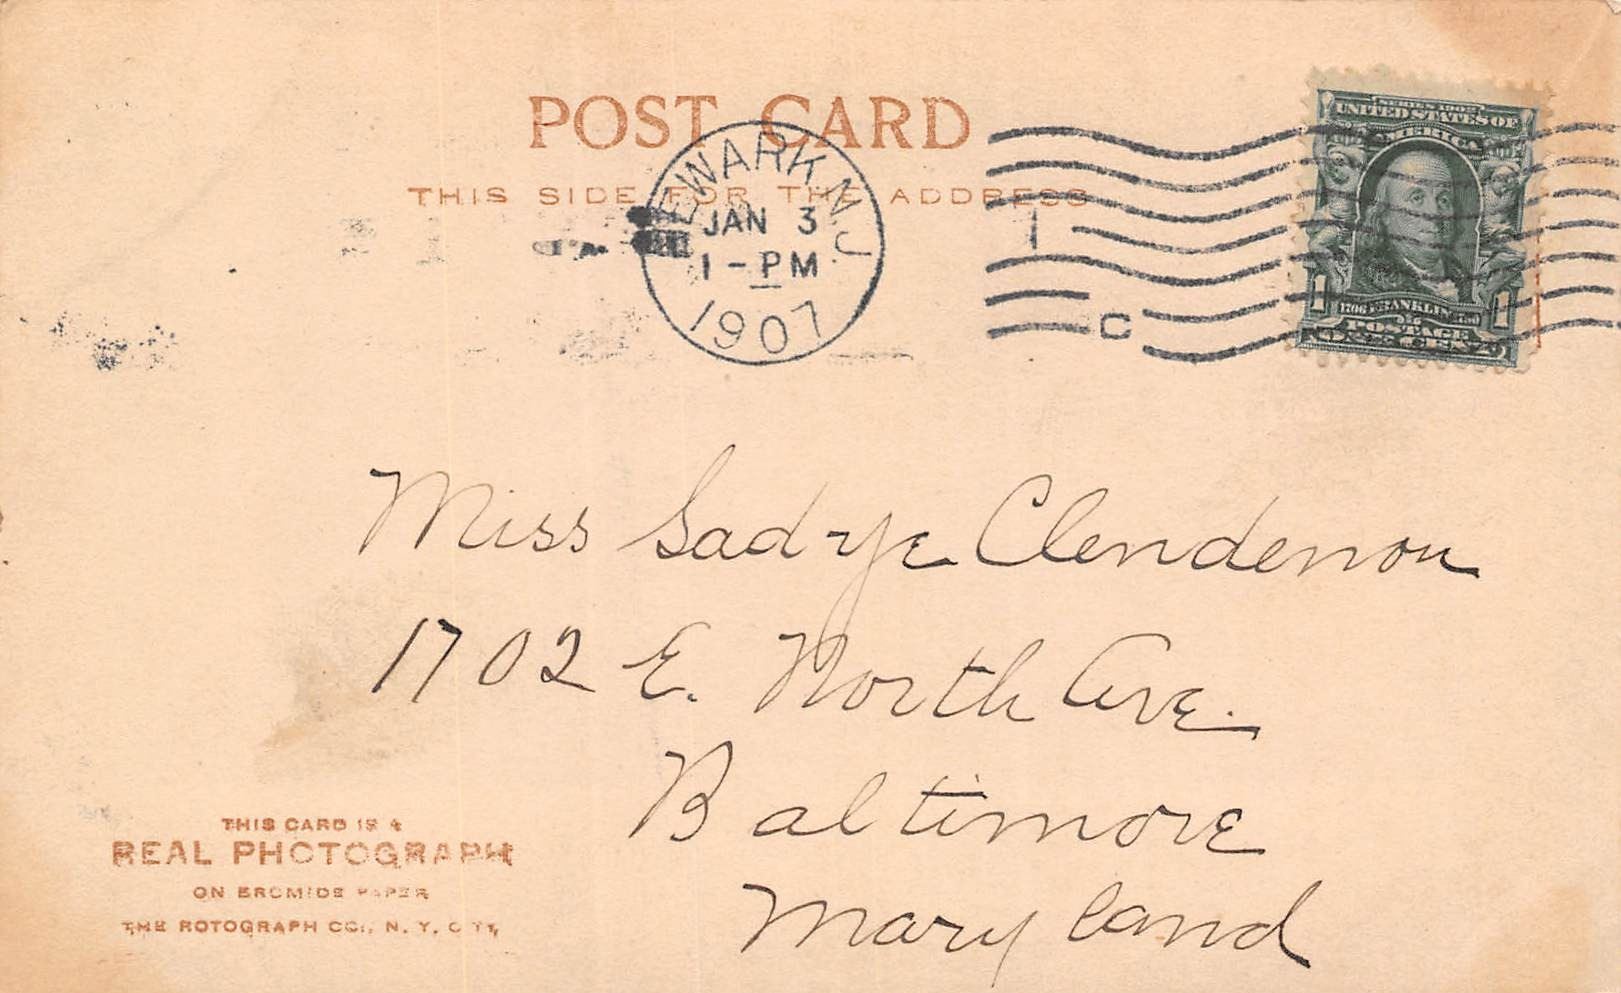 POST CARD
THIS SIDE FOR THE ADDRESS
NEWARK N.J.
JAN 3
1 - PM
1907
C
SERIES 1902
UNITED STATES OF
AMERICA
1 1706 FRANKLIN 1790 1
POSTAGE
ONE CENT
Miss Sadye Clendenon
1702 E. North Ave.
Baltimore
Maryland
THIS CARD IS A
REAL PHOTOGRAPH
ON BROMIDE PAPER
THE ROTOGRAPH CO., N. Y. CITY